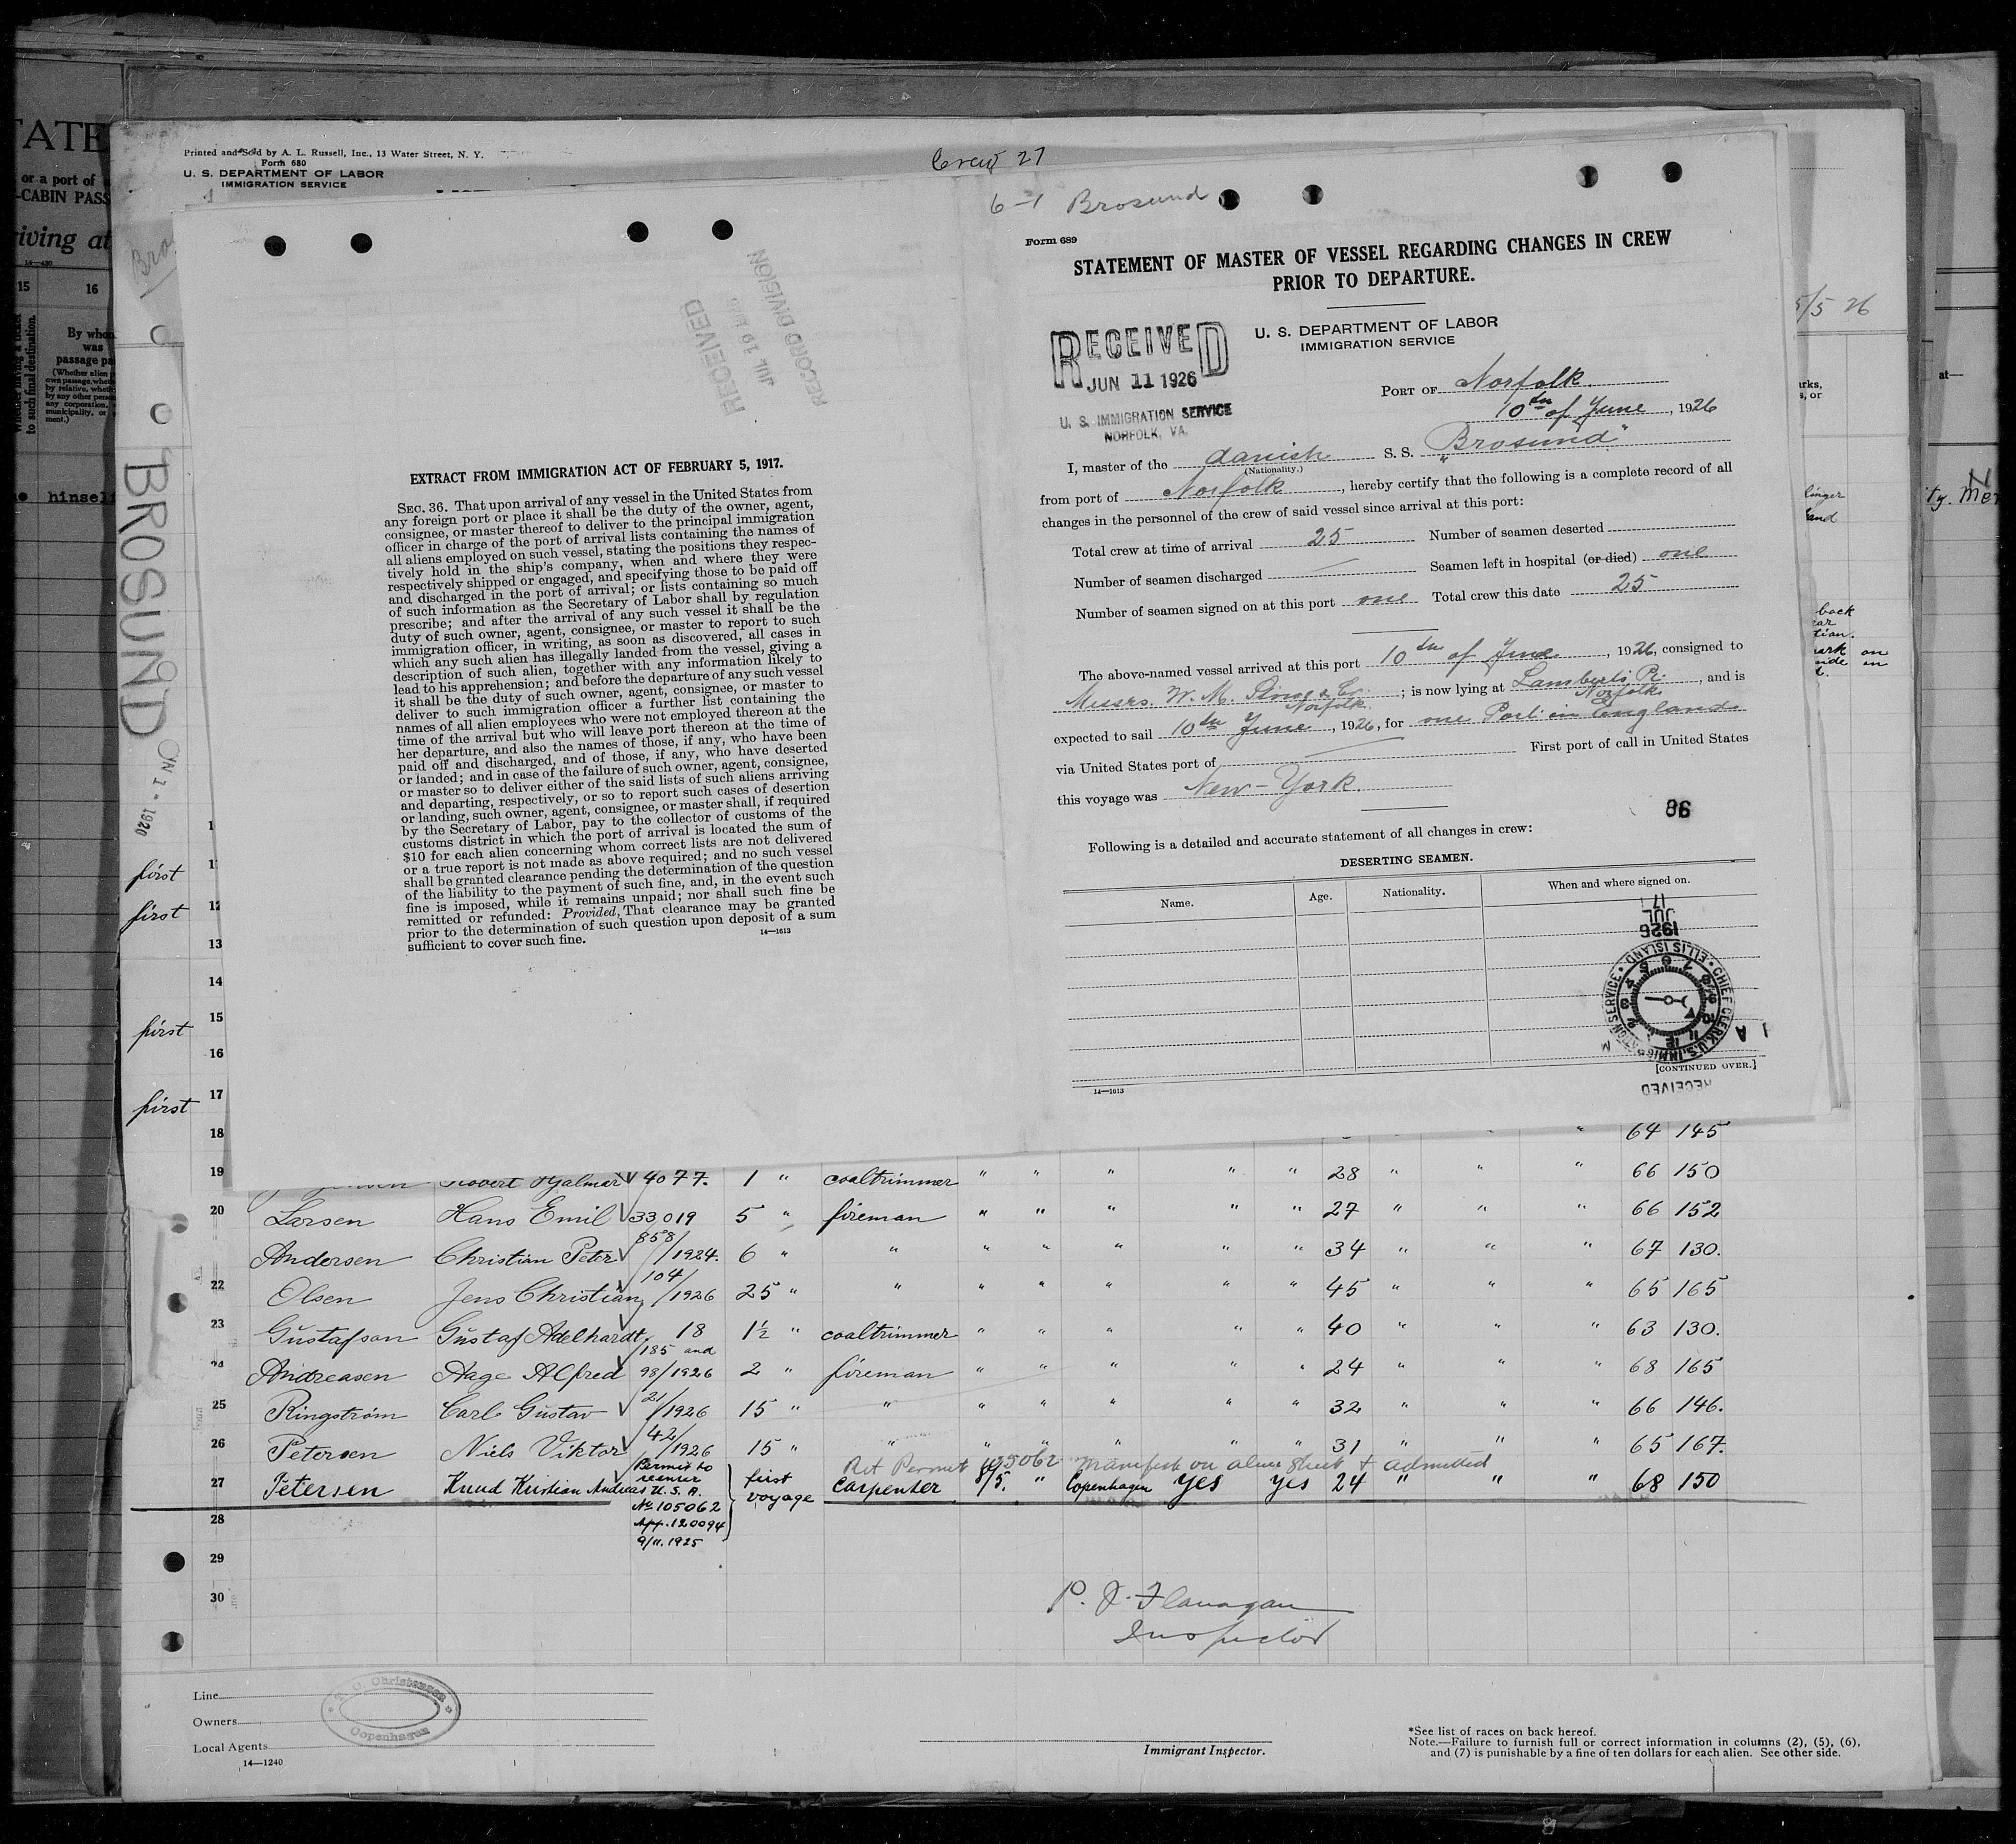 TATE
or a port of
-CABIN PASS
iving at
14—430
15 16
Whether having a ticket to such final destination.
By whom
was
passage pa
(Whether alien
own passage, wheth
by relative, wheth
by any other person
any corporation,
municipality, or
ment.)
himself
Printed and Sold by A. L. Russell, Inc., 13 Water Street, N. Y.
Form 680
U. S. DEPARTMENT OF LABOR
IMMIGRATION SERVICE
Crew 27
Bro
BROSUND
JUN 1 - 1926
first
first
first
first
RECEIVED
JUL 19 1926
RECORD DIVISION
EXTRACT FROM IMMIGRATION ACT OF FEBRUARY 5, 1917.
SEC. 36. That upon arrival of any vessel in the United States from
any foreign port or place it shall be the duty of the owner, agent,
consignee, or master thereof to deliver to the principal immigration
officer in charge of the port of arrival lists containing the names of
all aliens employed on such vessel, stating the positions they respec-
tively hold in the ship's company, when and where they were
respectively shipped or engaged, and specifying those to be paid off
and discharged in the port of arrival; or lists containing so much
of such information as the Secretary of Labor shall by regulation
prescribe; and after the arrival of any such vessel it shall be the
duty of such owner, agent, consignee, or master to report to such
immigration officer, in writing, as soon as discovered, all cases in
which any such alien has illegally landed from the vessel, giving a
description of such alien, together with any information likely to
lead to his apprehension; and before the departure of any such vessel
it shall be the duty of such owner, agent, consignee, or master to
deliver to such immigration officer a further list containing the
names of all alien employees who were not employed thereon at the
time of the arrival but who will leave port thereon at the time of
her departure, and also the names of those, if any, who have been
paid off and discharged, and of those, if any, who have deserted
or landed; and in case of the failure of such owner, agent, consignee,
or master so to deliver either of the said lists of such aliens arriving
and departing, respectively, or so to report such cases of desertion
or landing, such owner, agent, consignee, or master shall, if required
by the Secretary of Labor, pay to the collector of customs of the
customs district in which the port of arrival is located the sum of
$10 for each alien concerning whom correct lists are not delivered
or a true report is not made as above required; and no such vessel
shall be granted clearance pending the determination of the question
of the liability to the payment of such fine, and, in the event such
fine is imposed, while it remains unpaid; nor shall such fine be
remitted or refunded: Provided, That clearance may be granted
prior to the determination of such question upon deposit of a sum
sufficient to cover such fine.
14—1613
6-1 Brosund
Form 689
STATEMENT OF MASTER OF VESSEL REGARDING CHANGES IN CREW
PRIOR TO DEPARTURE.
U. S. DEPARTMENT OF LABOR
IMMIGRATION SERVICE
RECEIVED
JUN 11 1926
U. S. IMMIGRATION SERVICE
NORFOLK, VA.
PORT OF Norfolk.
10th of June, 1926
I, master of the danish S. S. "Brosund"
(Nationality.)
from port of Norfolk, hereby certify that the following is a complete record of all
changes in the personnel of the crew of said vessel since arrival at this port:
Total crew at time of arrival 25 Number of seamen deserted
Number of seamen discharged — Seamen left in hospital (or died) one
Number of seamen signed on at this port one Total crew this date 25
The above-named vessel arrived at this port 10th of June, 1926, consigned to
Messrs. W. M. & Co. Norfolk; is now lying at Lamberts P. Norfolk, and is
expected to sail 10th June, 1926, for one Port in England
via United States port of First port of call in United States
this voyage was New-York.
86
Following is a detailed and accurate statement of all changes in crew:
DESERTING SEAMEN.
Name. Age. Nationality. When and where signed on.
[CONTINUED OVER.]
14—1613
RECEIVED
CHIEF CLERK, U.S. IMMIGRATION SERVICE • ELLIS ISLAND
1926
JUL
17
5/5 26
at—
18 64 145
19 Robert Hjalmar 4077. 1 " coaltrimmer " " " " " 28 " " " 66 150
20 Larsen Hans Emil 33,019 5 " fireman " " " " " 27 " " " 66 152
Andersen Christian Peter 858/1924. 6 " " " " " " " 34 " " " 67 130.
22 Olsen Jens Christian 104/1926 25 " " " " " " " 45 " " " 65 165
23 Gustafson Gustaf Adelhardt 18 1½ " coaltrimmer " " " " " 40 " " " 63 130.
24 Andreasen Aage Alfred 185 and 98/1926 2 " fireman " " " " " 24 " " " 68 165
25 Ringström Carl Gustav 21/1926 15 " " " " " " " 32 " " " 66 146.
26 Petersen Niels Viktor 42/1926 15 " " " " " " " 31 " " " 65 167.
Ret Permit 105062 Manifest on alien sheet & admitted
27 Petersen Knud Kristian Andreas Permit to reenter U. S. A. No 105062 App. 120094 9/11. 1925 first voyage Carpenter 8/5. " Copenhagen yes yes 24 " " " 68 150
28
29
30
P. J. Flanagan
Inspector
Line
Owners
Local Agents
14—1240
Christensen
Copenhagen
Immigrant Inspector.
*See list of races on back hereof.
Note.—Failure to furnish full or correct information in columns (2), (5), (6),
and (7) is punishable by a fine of ten dollars for each alien. See other side.